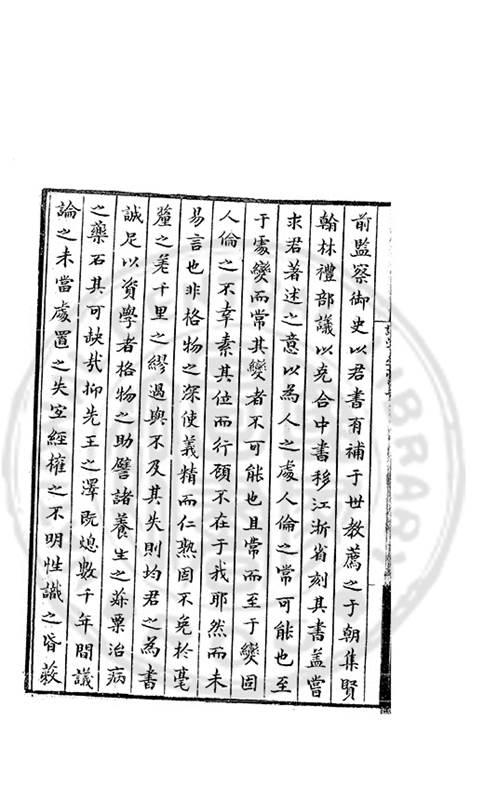 前監察御史以君書有補于世教薦之于朝集賢
翰林禮部議以充合中書移江浙省刻其書蓋嘗
求君著述之意以為人之處人倫之常可能也至
于處變而常其變者不可能也且常而至于變固
人倫之不幸素其位而行顧不在于我耶然而未
易言也非格物之深使義精而仁熟固不免於毫
釐之差千里之繆過與不及其失則均君之為書
誠足以資學者格物之助譬諸養生之菽粟治病
之藥石其可缺哉抑先王之澤既熄數千年間議
論之未當處置之失宜經權之不明性識之昏蔽